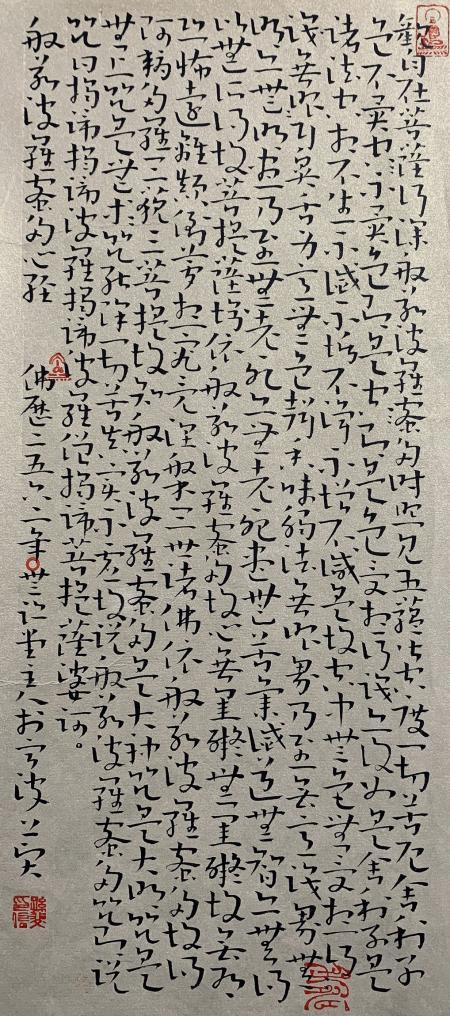 觀自在菩薩行深般若波羅蜜多時照見五蘊皆空度一切苦厄舍利子
色不異空空不異色色即是空空即是色受想行識亦復如是舍利子是
諸法空相不生不滅不垢不淨不增不減是故空中無色無受想行
識無眼耳鼻舌身意無色聲香味觸法無眼界乃至無意識界無
無明亦無無明盡乃至無老死亦無老死盡無苦集滅道無智亦無得
以無所得故菩提薩埵依般若波羅蜜多故心無罣礙無罣礙故無有
恐怖遠離顛倒夢想究竟涅槃三世諸佛依般若波羅蜜多故得
阿耨多羅三藐三菩提故知般若波羅蜜多是大神咒是大明咒是
無上咒是無等等咒能除一切苦真實不虛故說般若波羅蜜多咒即說
咒曰揭諦揭諦波羅揭諦波羅僧揭諦菩提薩婆訶。
般若波羅蜜多心經
佛歷二五六二年 堂主人於寧波